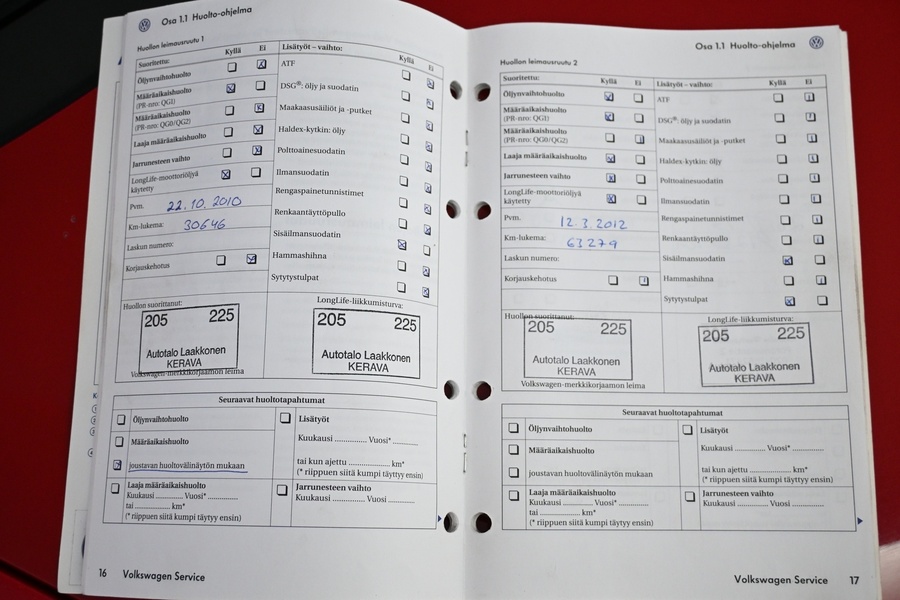 Osa 1.1 Huolto-ohjelma
Huollon leimausruutu 1
Suoritettu: Kyllä Ei
Öljynvaihtohuolto
Määräaikaishuolto
(PR-nro: QG1)
Määräaikaishuolto
(PR-nro: QG0/QG2)
Laaja määräaikaishuolto
Jarrunesteen vaihto
LongLife-moottoriöljyä
käytetty
Pvm. 22.10.2010
Km-lukema: 30646
Laskun numero:
Korjauskehotus
Lisätyöt – vaihto: Kyllä Ei
ATF
DSG®: öljy ja suodatin
Maakaasusäiliöt ja -putket
Haldex-kytkin: öljy
Polttoainesuodatin
Ilmansuodatin
Rengaspainetunnistimet
Renkaantäyttöpullo
Sisäilmansuodatin
Hammashihna
Sytytystulpat
Huollon suorittanut:
205 225
Autotalo Laakkonen
KERAVA
Volkswagen-merkkikorjaamon leima
LongLife-liikkumisturva:
205 225
Autotalo Laakkonen
KERAVA
Seuraavat huoltotapahtumat
Öljynvaihtohuolto
Määräaikaishuolto
joustavan huoltovälinäytön mukaan
Laaja määräaikaishuolto
Kuukausi ........... Vuosi* ............
tai ............... km*
(* riippuen siitä kumpi täytyy ensin)
Lisätyöt
Kuukausi .............. Vuosi* ..........
tai kun ajettu .................. km*
(* riippuen siitä kumpi täyttyy ensin)
Jarrunesteen vaihto
Kuukausi .............. Vuosi ...........
16 Volkswagen Service
Osa 1.1 Huolto-ohjelma
Huollon leimausruutu 2
Suoritettu: Kyllä Ei
Öljynvaihtohuolto
Määräaikaishuolto
(PR-nro: QG1)
Määräaikaishuolto
(PR-nro: QG0/QG2)
Laaja määräaikaishuolto
Jarrunesteen vaihto
LongLife-moottoriöljyä
käytetty
Pvm. 12.3.2012
Km-lukema: 63279
Laskun numero:
Korjauskehotus
Lisätyöt – vaihto: Kyllä Ei
ATF
DSG®: öljy ja suodatin
Maakaasusäiliöt ja -putket
Haldex-kytkin: öljy
Polttoainesuodatin
Ilmansuodatin
Rengaspainetunnistimet
Renkaantäyttöpullo
Sisäilmansuodatin
Hammashihna
Sytytystulpat
Huollon suorittanut:
205 225
Autotalo Laakkonen
KERAVA
Volkswagen-merkkikorjaamon leima
LongLife-liikkumisturva:
205 225
Autotalo Laakkonen
KERAVA
Seuraavat huoltotapahtumat
Öljynvaihtohuolto
Määräaikaishuolto
joustavan huoltovälinäytön mukaan
Laaja määräaikaishuolto
Kuukausi ........... Vuosi* ............
tai ............... km*
(* riippuen siitä kumpi täytyy ensin)
Lisätyöt
Kuukausi .............. Vuosi* ..........
tai kun ajettu .................. km*
(* riippuen siitä kumpi täyttyy ensin)
Jarrunesteen vaihto
Kuukausi .............. Vuosi ...........
Volkswagen Service 17